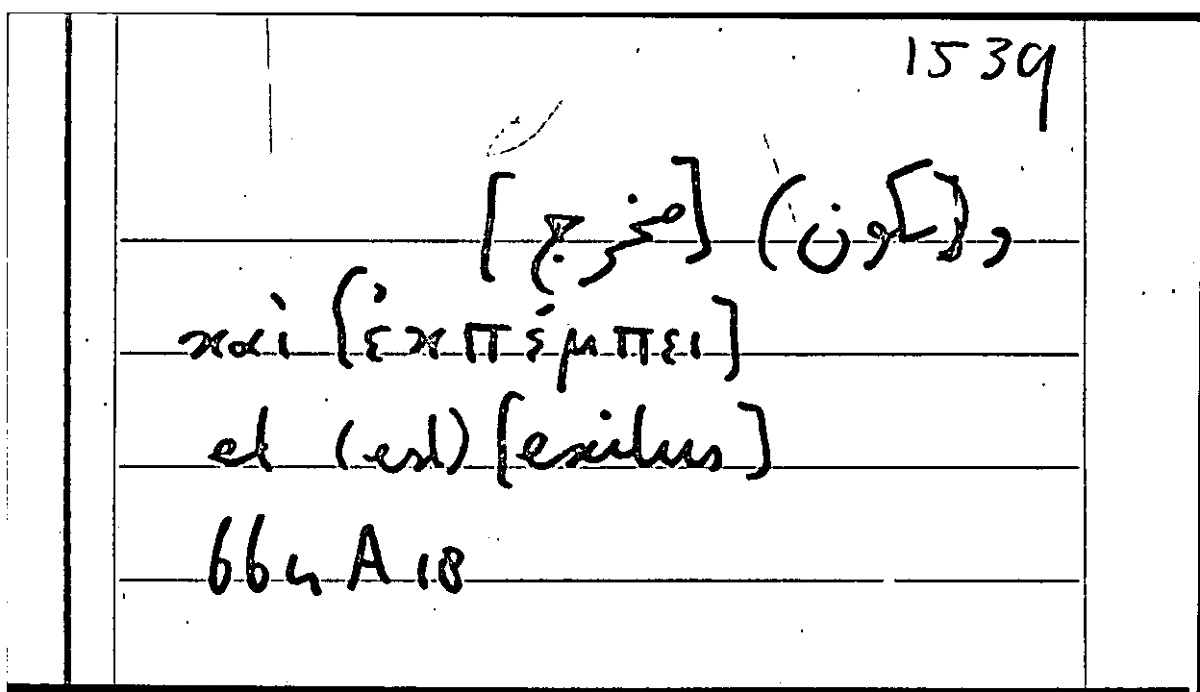 1539
و [مخرج]
καὶ [ἐκπέμπει]
et (est) [exitus]
664 A 18